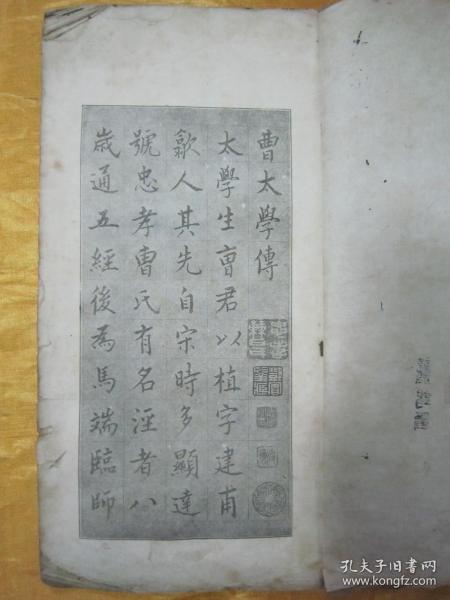 曹太學傳
太學生曹君以植字建甫
歙人其先自宋時多顯達
號忠孝曹氏有名涇者八
歳通五經後為馬端臨師
孔夫子旧书网
www.kongfz.com